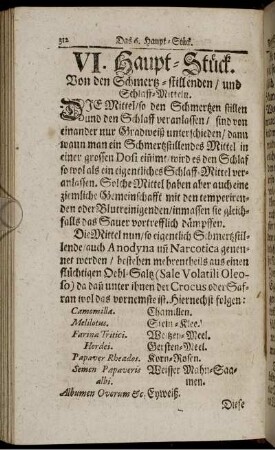 312 Das 6. Haupt-Stück.
VI. Haupt-Stück.
Von den Schmertz-stillenden / und
Schlaff-Mitteln.
DIE Mittel / so den Schmertzen stillen
und den Schlaff veranlassen / sind von
einander nur Gradweiß unterschieden / dann
wann man ein Schmertzstillendes Mittel in
einer grossen Dosi einimt / wird es den Schlaf
so wol als ein eigentliches Schlaff-Mittel ver-
anlassen. Solche Mittel haben aber auch eine
ziemliche Gemeinschafft mit den temperiren-
den oder Blutreinigenden / inmassen sie gleich-
falls das Saure vortrefflich dämpffen.
Die Mittel nun / so eigentlich Schmertzstil-
lende / auch Anodyna uñ Narcotica genen-
net werden / bestehen mehrentheils aus einen
flüchtigen Oehl-Saltz (Sale Volatili Oleo-
so) da dañ unter ihnen der Crocus oder Saf-
ran wol das vornemste ist. Hiernechst folgen:
Camomilla. Chamillen.
Melilotus. Stein-Klee.
Farina Tritici. Weitzen-Meel.
Hordei. Gersten-Meel.
Papaver Rheados. Korn-Rosen.
Semen Papaveris Weisser Mahn-Saa-
albi. men.
Albumen Ovorum &c. Eyweiß.
Diese